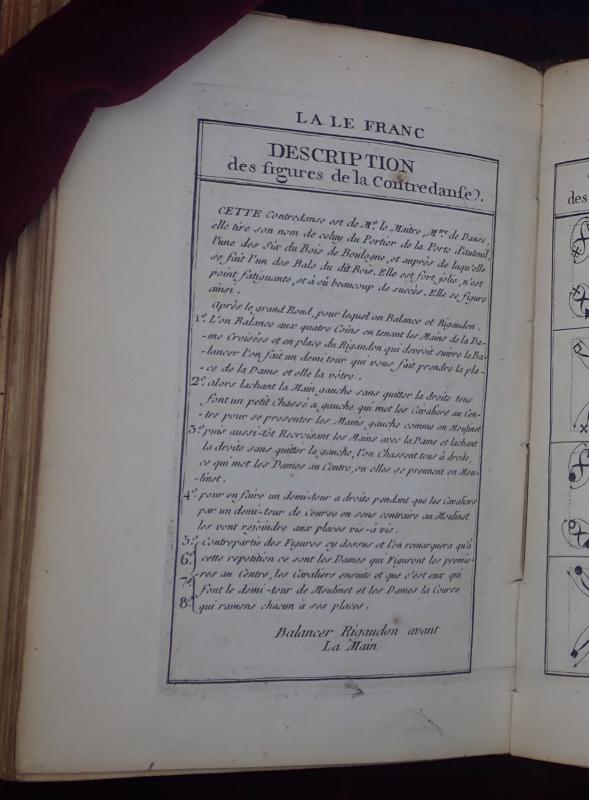 LA LE FRANC
DESCRIPTION
des figures de la Contredanse.
CETTE Contredanse est de Mr. le Maître, Mtre de Danse,
elle tire son nom de celuy du Portier de la Porte d'auteuil,
l'une des Six du Bois de Boulogne, et auprés de laqu'elle
se fait l'un des Bals du dit Bois. Elle est fort jolie, n'est
point fatiguante, et a eû beaucoup de succès. Elle se figure
ainsi.
Après le grand Rond, pour lequel on Balance et Rigaudon.
1.º L'on Balance aux quatre Coins en tenant les Mains de la Da-
-me Croisées et en place du Rigaudon qui devroit suivre le Ba-
-lancer l'on fait un demi tour qui vous fait prendre la pla-
-ce de la Dame et elle la vôtre.
2.º Alors lachant la Main gauche sans quitter la droite tous
font un petit Chassé a gauche qui met les Cavaliers au Cen-
-tre pour se presenter les Mains gauche comme en Moulinet
3.º puis aussi-tôt Recroisant les Mains avec la Dame et lachant
la droite sans quitter la gauche, l'on Chassent tous à droite,
ce qui met les Dames au Centre, ou elles se prennent en Mou-
-linet.
4.º pour en faire un demi-tour a droite pendant que les Cavaliers
par un demi-tour de Course en sens contraire au Moulinet
les vont rejoindre aux places vis-à vis.
5.º Contrepartie des Figures cy dessus et l'on remarquera qu'à
6.º cette repetition ce sont les Dames qui Figurent les premie-
7.º -res au Centre, les Cavaliers ensuite et que c'est eux qui
font le demi-tour de Moulinet et les Dames la Course
8.º qui ramene chacun à ses places.
Balancer Rigaudon avant
La Main
des